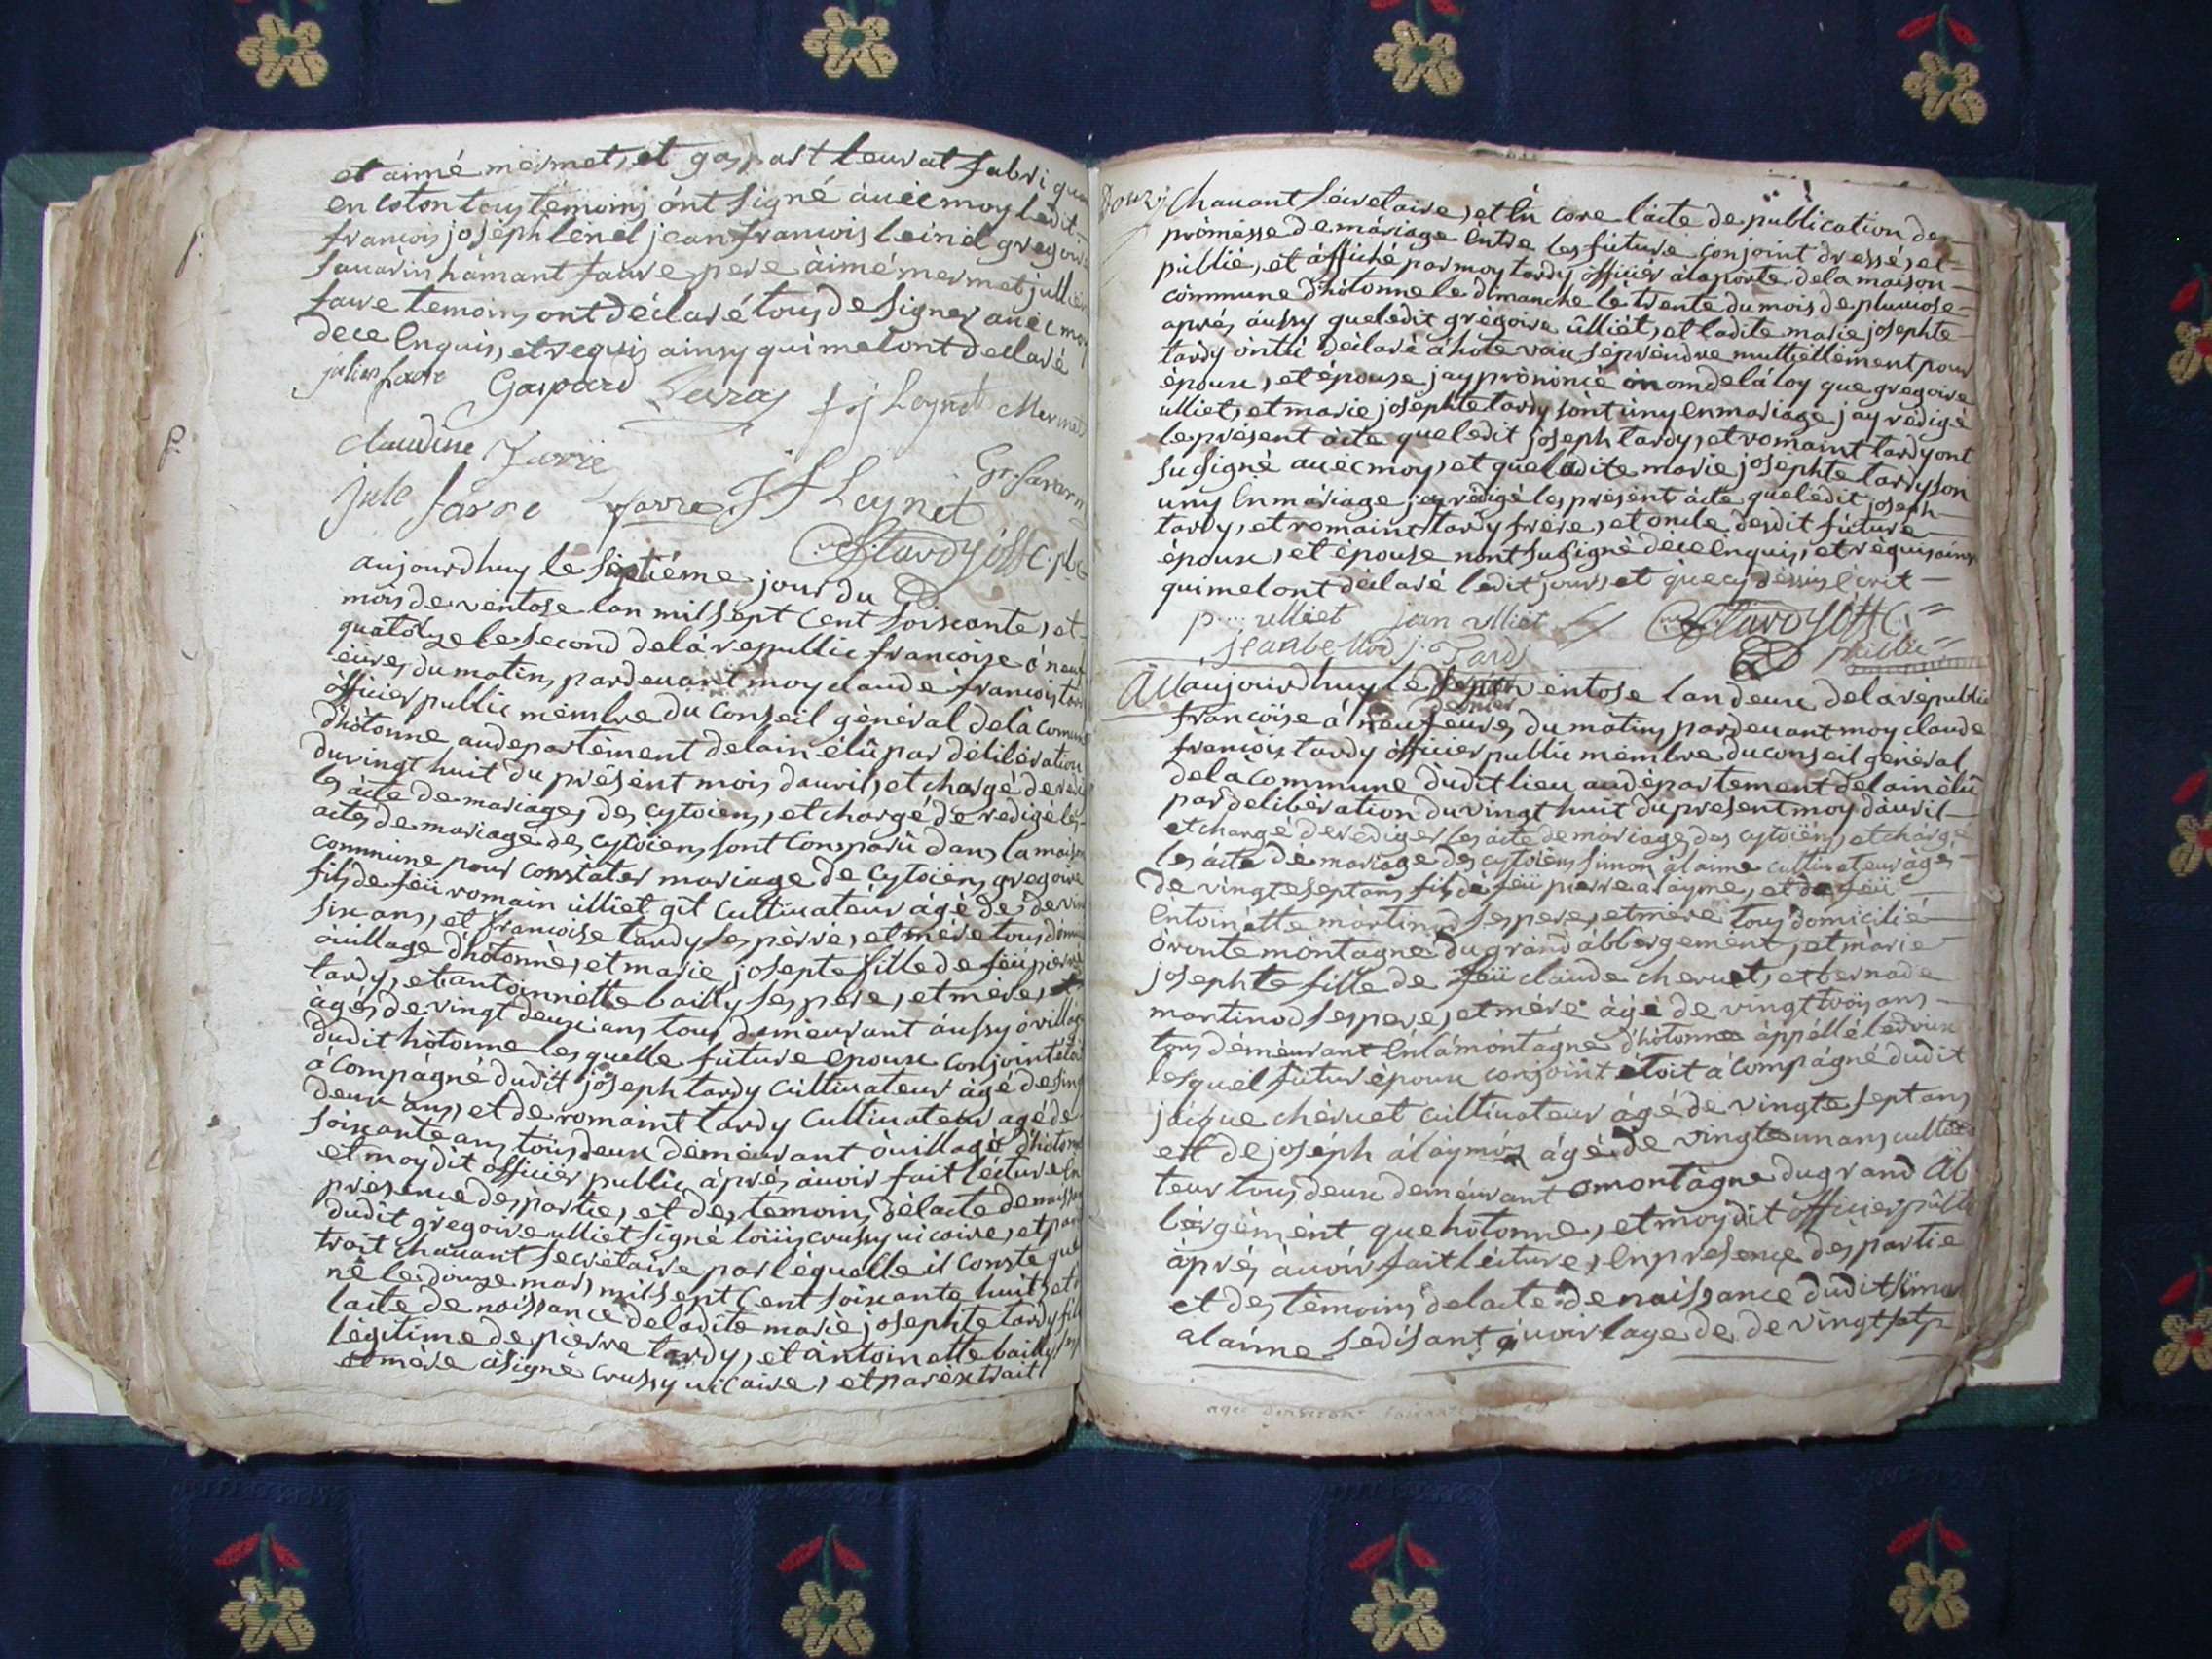 et aimé mermet, et gaspart leurat fabriqu
en coton touy temoins ont signé auéc moy ledit
francois joseph lenel jean francois leinel gregoire
sauarin hamant faure pere aimé mermet jullien
faure temoins ont déclaré tous de signer auéc moy
dece enquis, et requis ainsy qui melont declaré
julien favre Gaspard f j Leynet Mermet
claudine Favre
jule favre favre J f Leynet Gr. Savarin
Tardy offc. plc
aujourdhuy le septiéme jour du
mois de ventose lan mil sept cent soixante, et
quatorze le second delà republic francoise o neuf
eures du matin, pardeuant moy claude francois tar
officier public mémbre du conseil géneral delà comune
dhotonne audepartement delain élu par délibération
du vingt huit du présent mois dauril, et chargé de redi
les acte de mariages des cytoiens, et chargé de redigé les
actes de mariage des cytoiens sont comparu dans la maison
commune pour constater mariage de cytoiens gregoire
fils de feü romain ulliet git cultiuateur agé de de vin
six ans, et francoise tardy ses père, et mère tous domi
ouillage dhotonne, et marie josepte fille de feü pierre
tardy, et antoinnette bailly ses pere, et mère, et
àgés de vingt deux ans tous demeurant aussy o villag
dudit hotonne lesquelle future epoux conjoint étoi
à compàgné dudit joseph tardy cultiuateur agé de sing
deux ans, et de romaint tardy cultiuateur agé de
soixante ans tous deux demeurant ouillage dhotone
et moydit officier public après àuoir fait lécture en
présence des partie, et des temoins délacte denaissan
dudit gregoire ulliet signé loüis crussy uicaire, et par
trait chauant secrétaire par léquelle il conste que
né le douze mars mil sept cent soixante huit, et
lacte de naissance deladite marie josephte tardy fill
légitime de pierre tardy, et antoinette bailly ses
et mère àsigné crussy uicaire, et par extrait
Chauant sécretaire, et lu core lacte de publication de
promésse de màriage entre les future conjoint dréssé, et
publié, et affiché par moy tardy officier alaporte dela maison
commune dhotonne le dimanche lé trente du mois de pluuiose
aprés aussy queledit grégoire ulliét, et ladite marie josephte
tardy ontu déclaré àhote vaiu séprendre muttéllement pour
époux, et épouse jay prononcé onom delà loy que gregoire
ulliet, et marie josephte tardy sont uny enmariage jay rédigé
leprésent acte queledit joseph tardy, et romaint tardy ont
susigné auécmoy, et queladite marie joséphte tardy son
uny en màriage jay rédigé le présent acte queledit joseph
tardy, et romaint tardy frére, et oncle desdit future
époux, et épouse nont susigné dece enquis, et réquis ainsy
quimelont déclaré ledit jours et que cy dessus écrit
p ulliet jean ulliet Tardy offc.
jean be j. Tardj public
Au aujourdhuy le ventose lan deux dela républic
dernier
francoise à neuf eures du matin, pardeuant moy claude
francois tardy officier public mémbre du conseil général
dela commune dudit lieu audépartement delain élu
par delibération du vingt huit du present moy dàuril
et chargé de rediger les acte de mariage des cytoiens, et chargé
les acte dé mariage des cytoiens simon alaime cultiuateur àgé
de vingte sept ans fils de feü pierre alayme, et de feü
entoinétte martinod ses pere, et mère tous domicilié
oroute montagne du grand abbergement, et marie
josephte fille de feü claude cheruet, et bernade
martinod ses pere, et mére àgé de vingt trois ans
tous demeurant enla montagne dhotonne appéllé ledoux
lesquel futur époux conjoint étoit à compàgné dudit
jacque chéruet cultiuateur àgé de vingte sept ans
ett de joséph alàymé àgé de vingte un ans cultiua
teur tous deux demeurant omontagne du grand Ab
bérgément que hotonne, et moydit officier public
àprés àuoir fait lécture, en présence des partie
et des témoins delacte denaissance dudit simon
alaime sedisant àuoir lage de de vingt sept